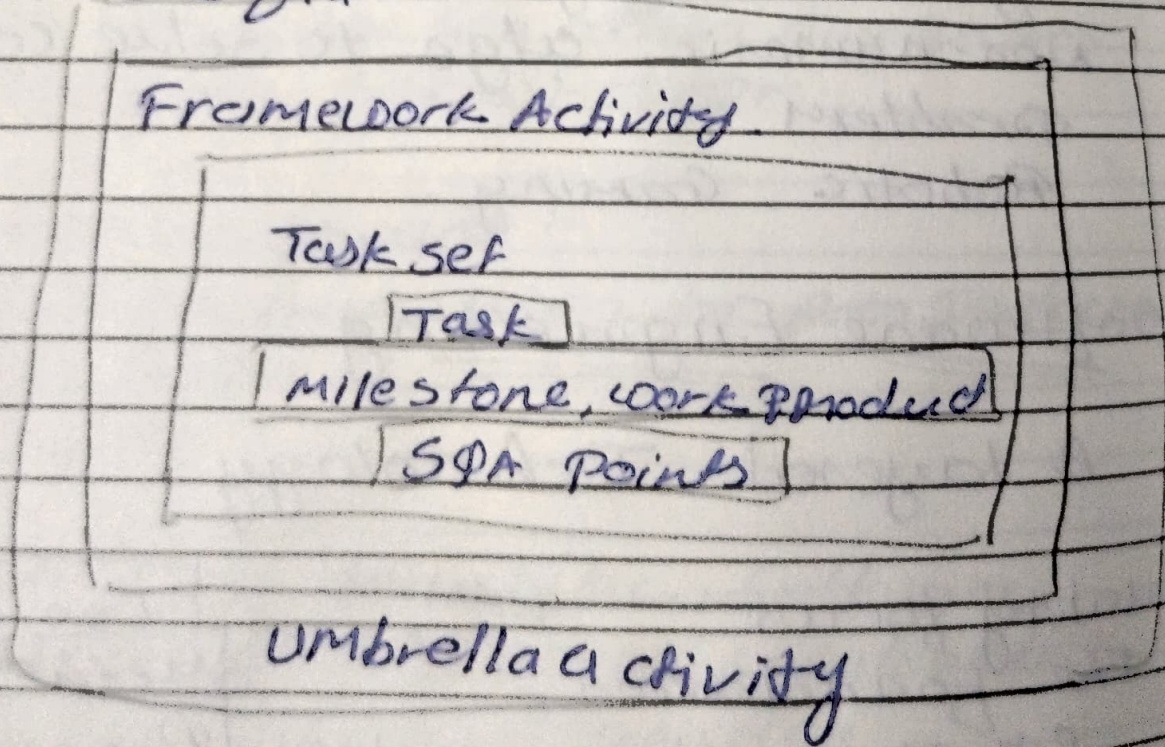 Framework Activity.
Task set
Task
Milestone, work product
SQA Points
Umbrella activity